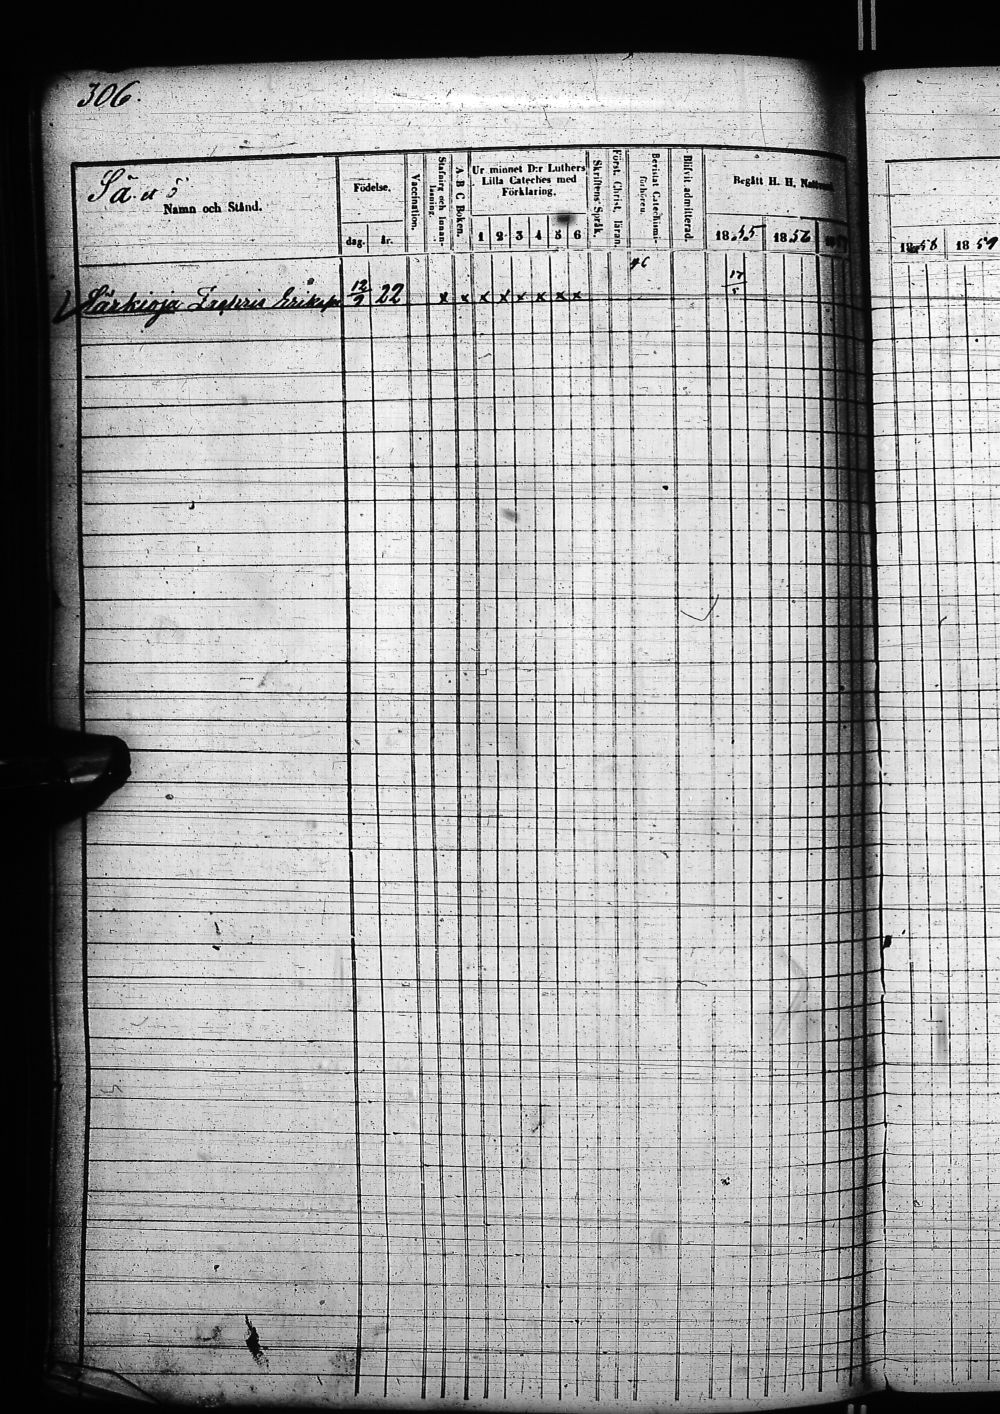 306.
Sä. 5
Namn och Stånd.
Födelse.
dag. år.
Vaccination.
Stafning och Innan-
läsning.
A. B. C. Boken.
Ur minnet D:r Luthers
Lilla Cateches med
Förklaring.
1 2 3 4 5 6
Skriftens Språk.
Först. Christ. läran.
Bevistat Catechismi-
förhören.
Blifvit admitterad.
Begått H. H. Nattvard
1855 1856
1858 1859
46
Särkioja 12/9 22 x x x x x x x x 17/5